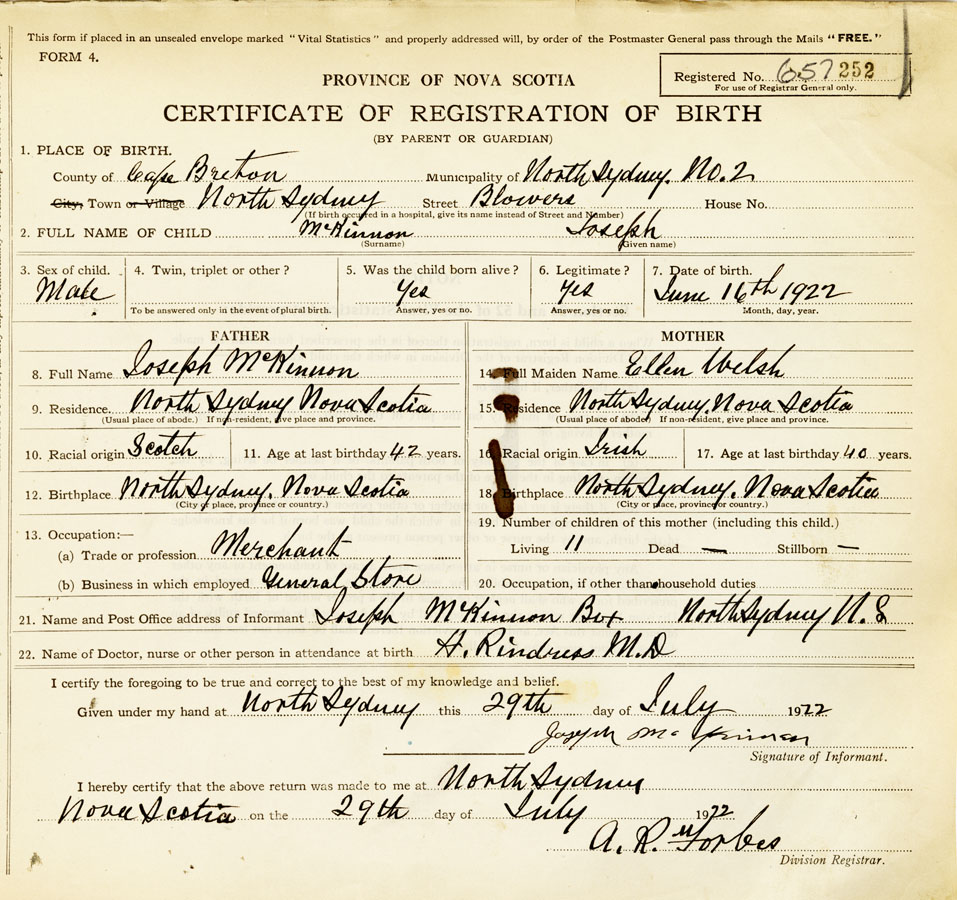 This form if placed in an unsealed envelope marked "Vital Statistics" and properly addressed will, by order of the Postmaster General pass through the Mails "FREE."
FORM 4.
Registered No. 657 252
For use of Registrar General only.
PROVINCE OF NOVA SCOTIA
CERTIFICATE OF REGISTRATION OF BIRTH
(BY PARENT OR GUARDIAN)
1. PLACE OF BIRTH.
County of Cape Breton Municipality of North Sydney. No. 2
City, Town or Village North Sydney Street Blowers House No.
(If birth occurred in a hospital, give its name instead of Street and Number)
2. FULL NAME OF CHILD McKinnon Joseph
(Surname) (Given name)
3. Sex of child. 4. Twin, triplet or other? 5. Was the child born alive? 6. Legitimate? 7. Date of birth.
Male Yes Yes June 16th 1922
To be answered only in the event of plural birth. Answer, yes or no. Answer, yes or no. Month, day, year.
FATHER
8. Full Name Joseph McKinnon
9. Residence. North Sydney Nova Scotia
(Usual place of abode.) If non-resident, give place and province.
10. Racial origin Scotch 11. Age at last birthday 42 years.
12. Birthplace North Sydney. Nova Scotia
(City or place, province or country.)
13. Occupation:—
(a) Trade or profession Merchant
(b) Business in which employed General Store
MOTHER
14. Full Maiden Name Ellen Welsh
15. Residence North Sydney. Nova Scotia
(Usual place of abode) If non-resident, give place and province.
16. Racial origin Irish 17. Age at last birthday 40 years.
18. Birthplace North Sydney. Nova Scotia
(City or place, province or country.)
19. Number of children of this mother (including this child.)
Living 11 Dead — Stillborn —
20. Occupation, if other than household duties
21. Name and Post Office address of Informant Joseph McKinnon Box North Sydney N. S
22. Name of Doctor, nurse or other person in attendance at birth H. Rindress M.D
I certify the foregoing to be true and correct to the best of my knowledge and belief.
Given under my hand at North Sydney this 29th day of July 1922
Joseph McKinnon
Signature of Informant.
I hereby certify that the above return was made to me at North Sydney
Nova Scotia on the 29th day of July 1922
A. R. Forbes
Division Registrar.